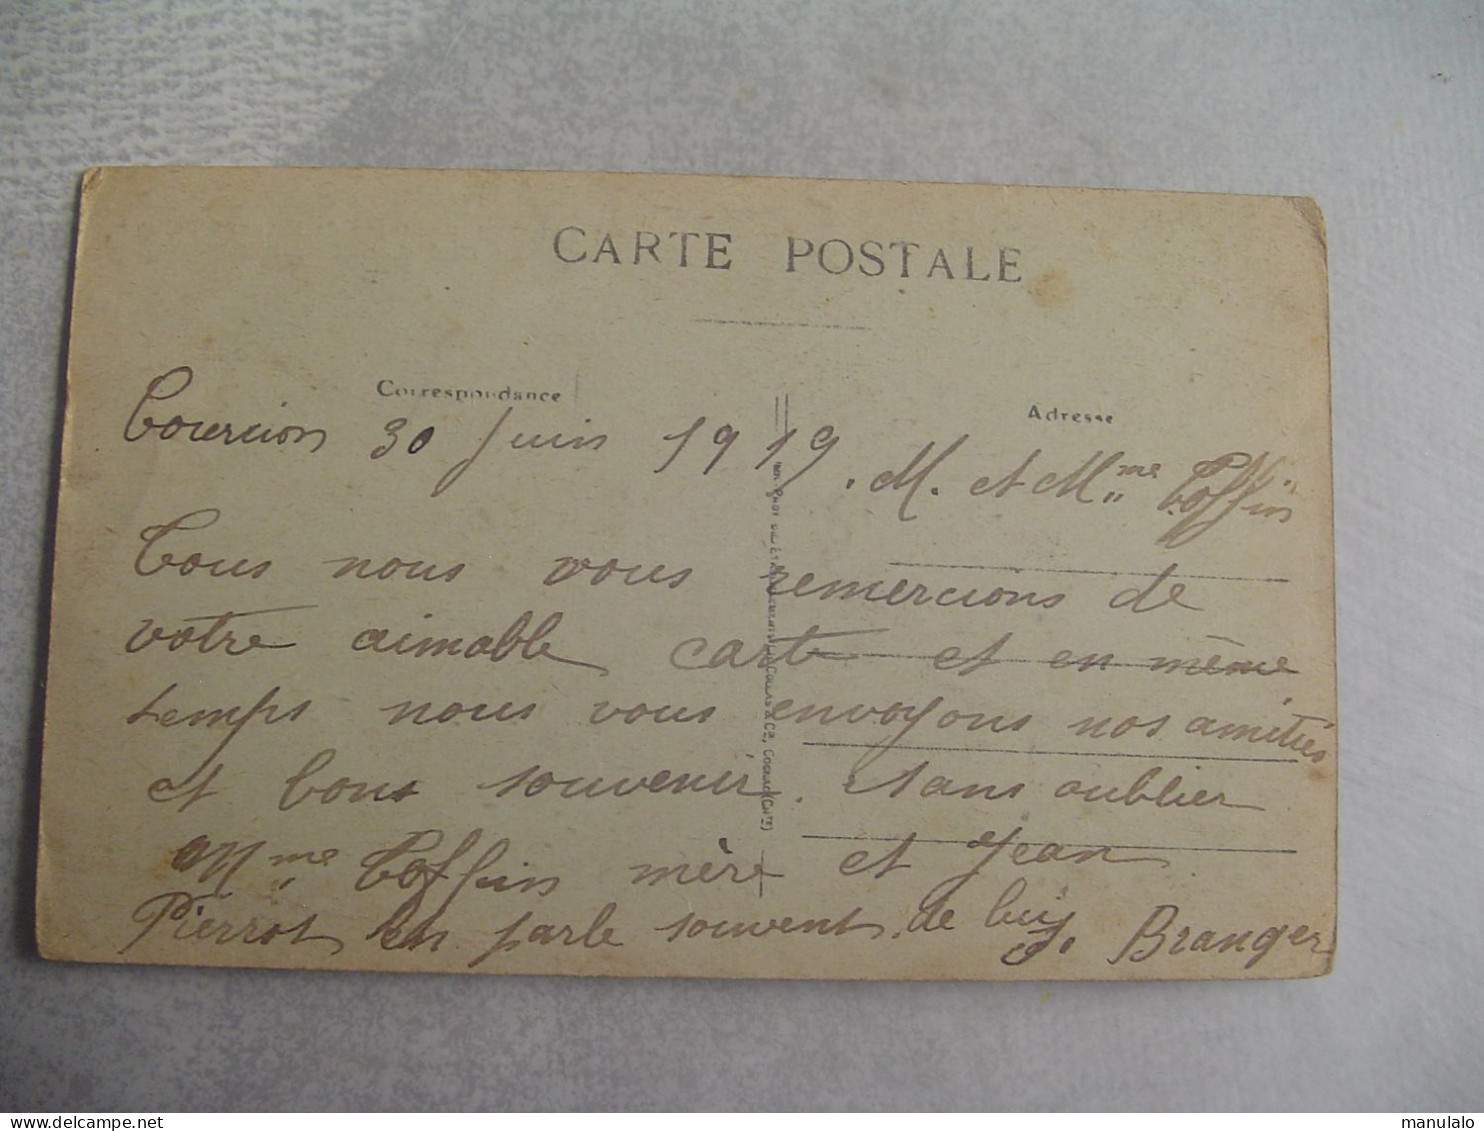 CARTE POSTALE
Correspondance
Adresse
Tourcion 30 Juin 1919.
M. et Mme Toffin
Tous nous vous remercions de
votre aimable carte et en même
temps nous vous envoyons nos amitiés
et bons souvenir. sans oublier
Mme Toffin mère et Jean
Pierrot en parle souvent de lui
J. Branger
www.manulalo